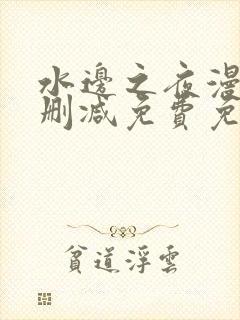 水邊之夜漫
刪減免費免
貧道浮雲